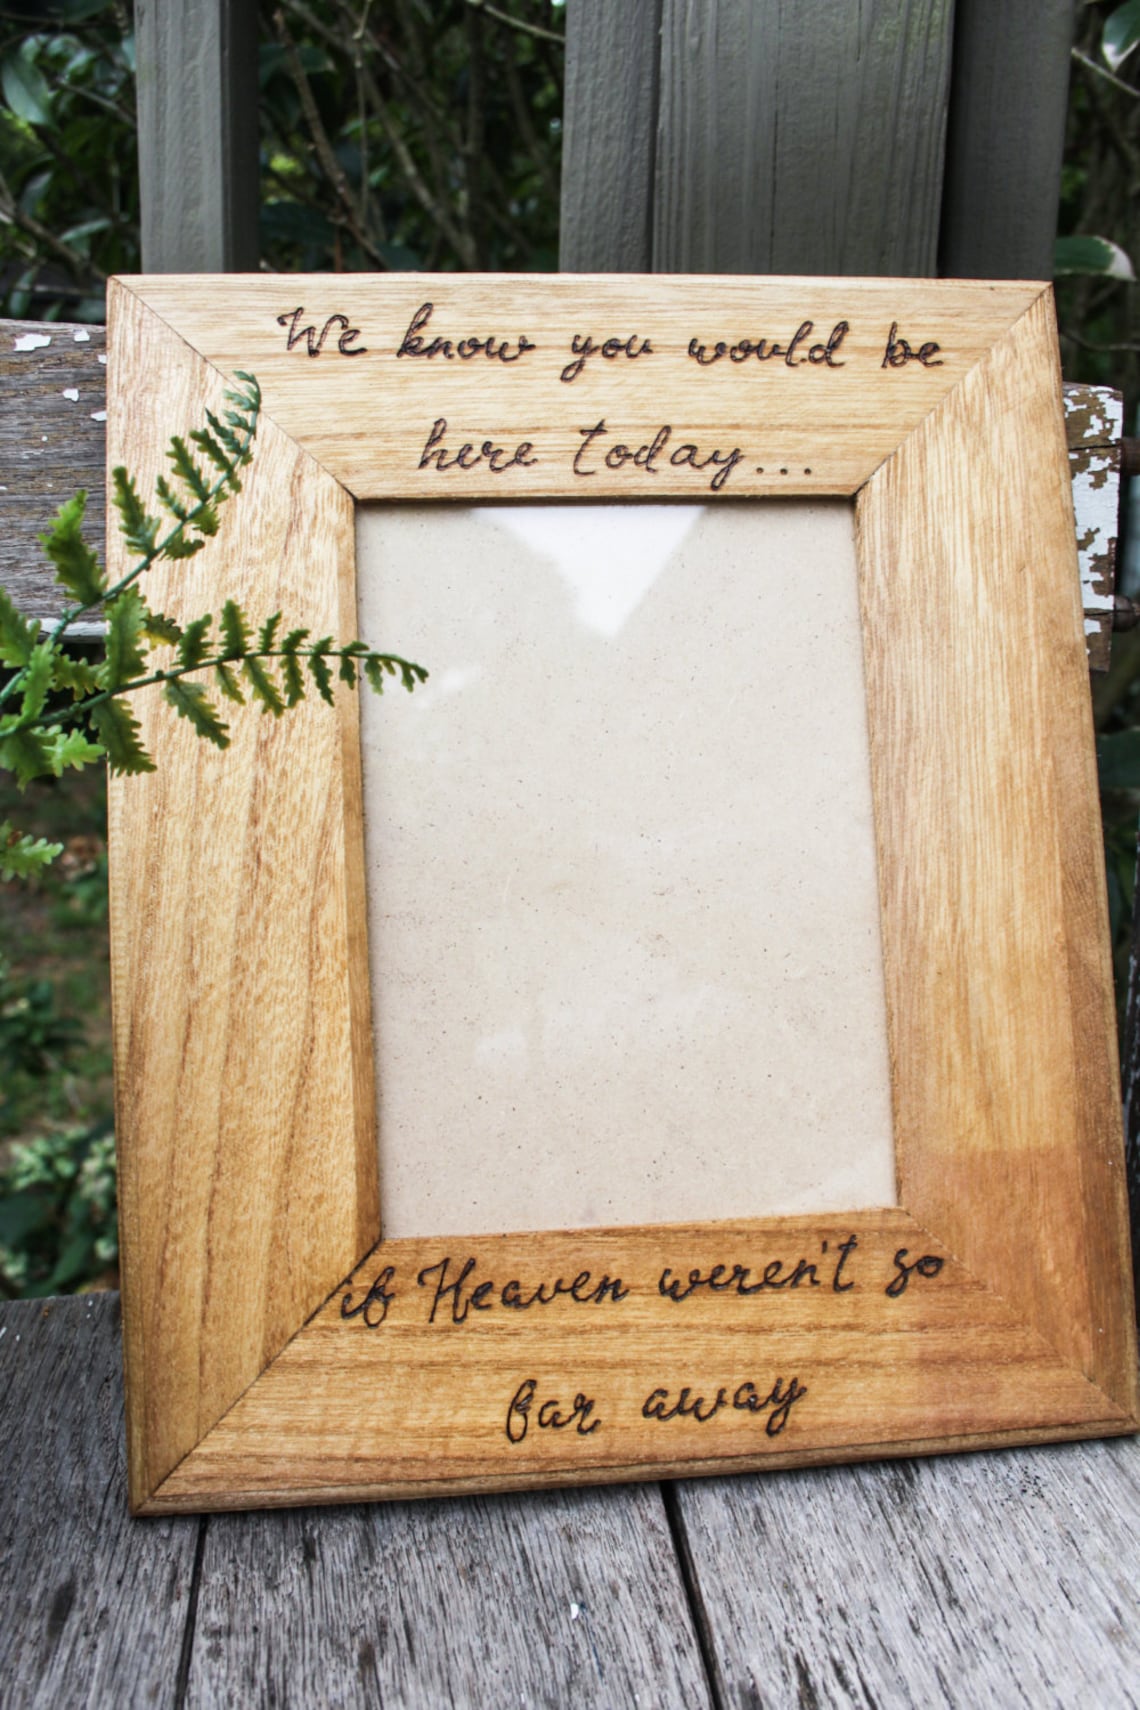 We know you would be
here today...
if Heaven weren't so
far away